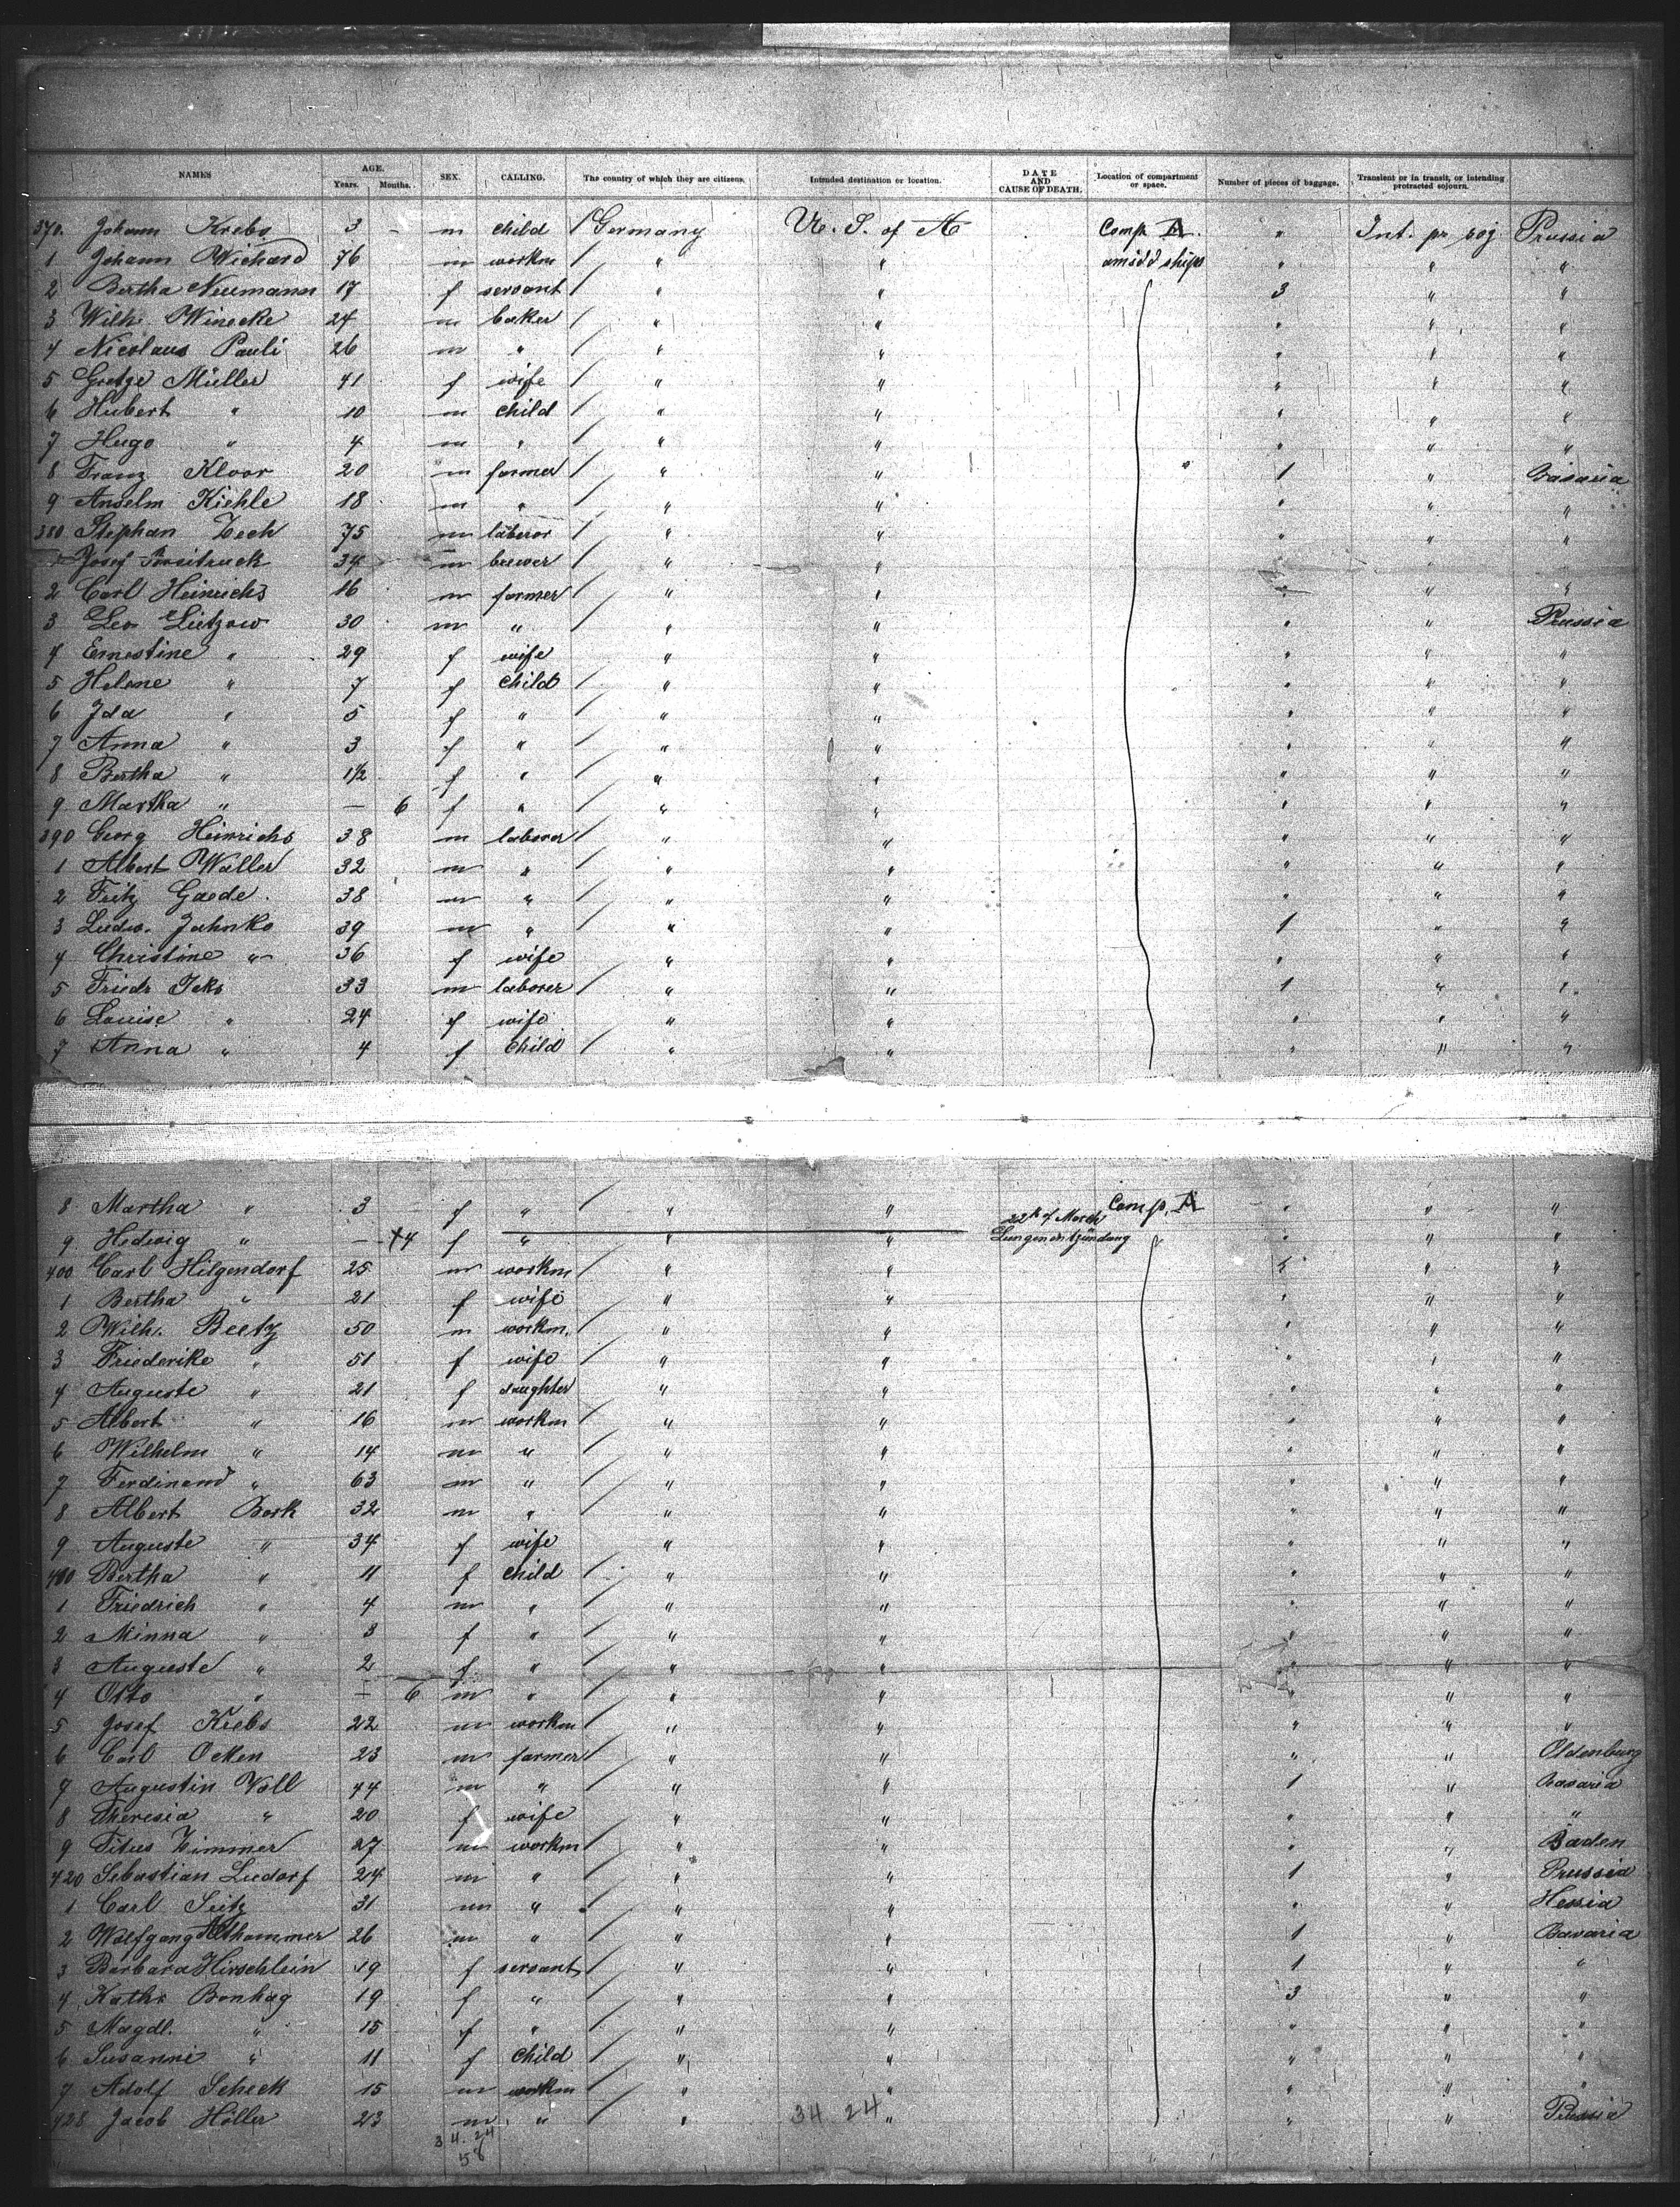 NAMES AGE. Years. Months. SEX. CALLING. The country of which they are citizens. Intended destination or location. DATE AND CAUSE OF DEATH. Location of compartment or space. Number of pieces of baggage. Transient or in transit, or intending protracted sojourn.
370. Johann Krebs 3 - m child / Germany U. S. of A Comp. A. " Int. pr soj Prussia
1 Johann Wichard 76 m workm / " " amidd ships " " "
2 Bertha Neumann 17 f servant / " " 3 " "
3 Wilh. Winecke 24 m baker / " " " " "
4 Nicolaus Pauli 26 m " / " " " " "
5 Gretge Müller 41 f wife / " " " " "
6 Hubert " 10 m child / " " " " "
7 Hugo " 4 m " / " " " " "
8 Franz Kloor 20 m farmer / " " 1 " Bavaria
9 Anselm Kiehle 18 m " / " " " " "
380 Stephan Zech 75 m laberor / " " " " "
Josef 34 m brewer / " " " "
2 Carl Heinrichs 16 m farmer / " " " " "
3 Leo Lietzow 30 m " / " " " " Prussia
4 Ernestine " 29 f wife / " " " " "
5 Helene " 7 f child / " " " " "
6 Ida " 5 f " / " " " " "
7 Anna " 3 f " / " " " " "
8 Bertha " 1½ f " / " " " " "
9 Martha " — 6 f " / " " " " "
390 Georg Heinrichs 38 m laborer / " " " " "
1 Albert Waller 32 m " / " " " " "
2 Fritz Gaede. 38 m " / " " " " "
3 Ludw. Jahnke 39 m " / " " 1 " "
4 Christine " 36 f wife / " " " " "
5 Friedr Jeks 33 m laborer / " " 1 " "
6 Louise " 24 f wife / " " " " "
7 Anna " 4 f child / " " " " "
8 Martha " 3 f " / " " Comp. A " " "
9 Hedwig " — 4 f " " " 22th of March Lungenentzündung " " "
400 Carl Hilgendorf 25 m workm / " " " " "
1 Bertha " 21 f wife / " " " " "
2 Wilh. Beetz 50 m workm. / " " " " "
3 Friederike " 51 f wife / " " " " "
4 Auguste " 21 f daughter " " " " "
5 Albert " 16 m workm / " " " " "
6 Wilhelm " 14 m " / " " " " "
7 Ferdinand " 63 m " / " " " " "
8 Albert Bork 32 m " / " " " " "
9 Auguste " 34 f wife / " " " " "
410 Bertha " 11 f child / " " " " "
1 Friedrich " 4 m " / " " " " "
2 Minna " 3 f " / " " " " "
3 Auguste " 2 f " / " " " " "
4 Otto " — 6 m " / " " " " "
5 Josef Kiebs 22 m workm / " " " " "
6 Carl Ocken 23 m farmer / " " " " Oldenburg
7 Augustin Voll 44 m " / " " 1 " Bavaria
8 Theresia " 20 f wife / " " " " "
9 Titus Zimmer 27 m workm / " " " " Baden
420 Sebastian Ludorf 24 m " / " " 1 " Prussia
1 Carl Seitz 31 m " / " " " " Hessia
2 Wolfgang Althammer 26 m " / " " 1 " Bavaria
3 Barbara Hirschlein 19 f servant / " " 1 " "
4 Kathr Bonhag 19 f " / " " 3 " "
5 Magdl. " 15 f " / " " " " "
6 Susanne " 11 f child / " " " " "
7 Adolf Scheck 15 m workm / " " " " "
428 Jacob Höller 23 m " / " 34 24 " " " Prussia
34. 24
58